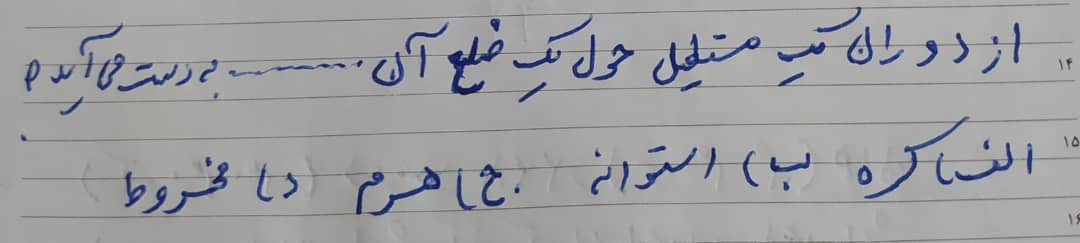 از دوران یک مستطیل حول یک ضلع آن ........... به دست می آید؟
الف) کره ب) استوانه ج) هرم د) مخروط
۱۴
۱۵
۱۶